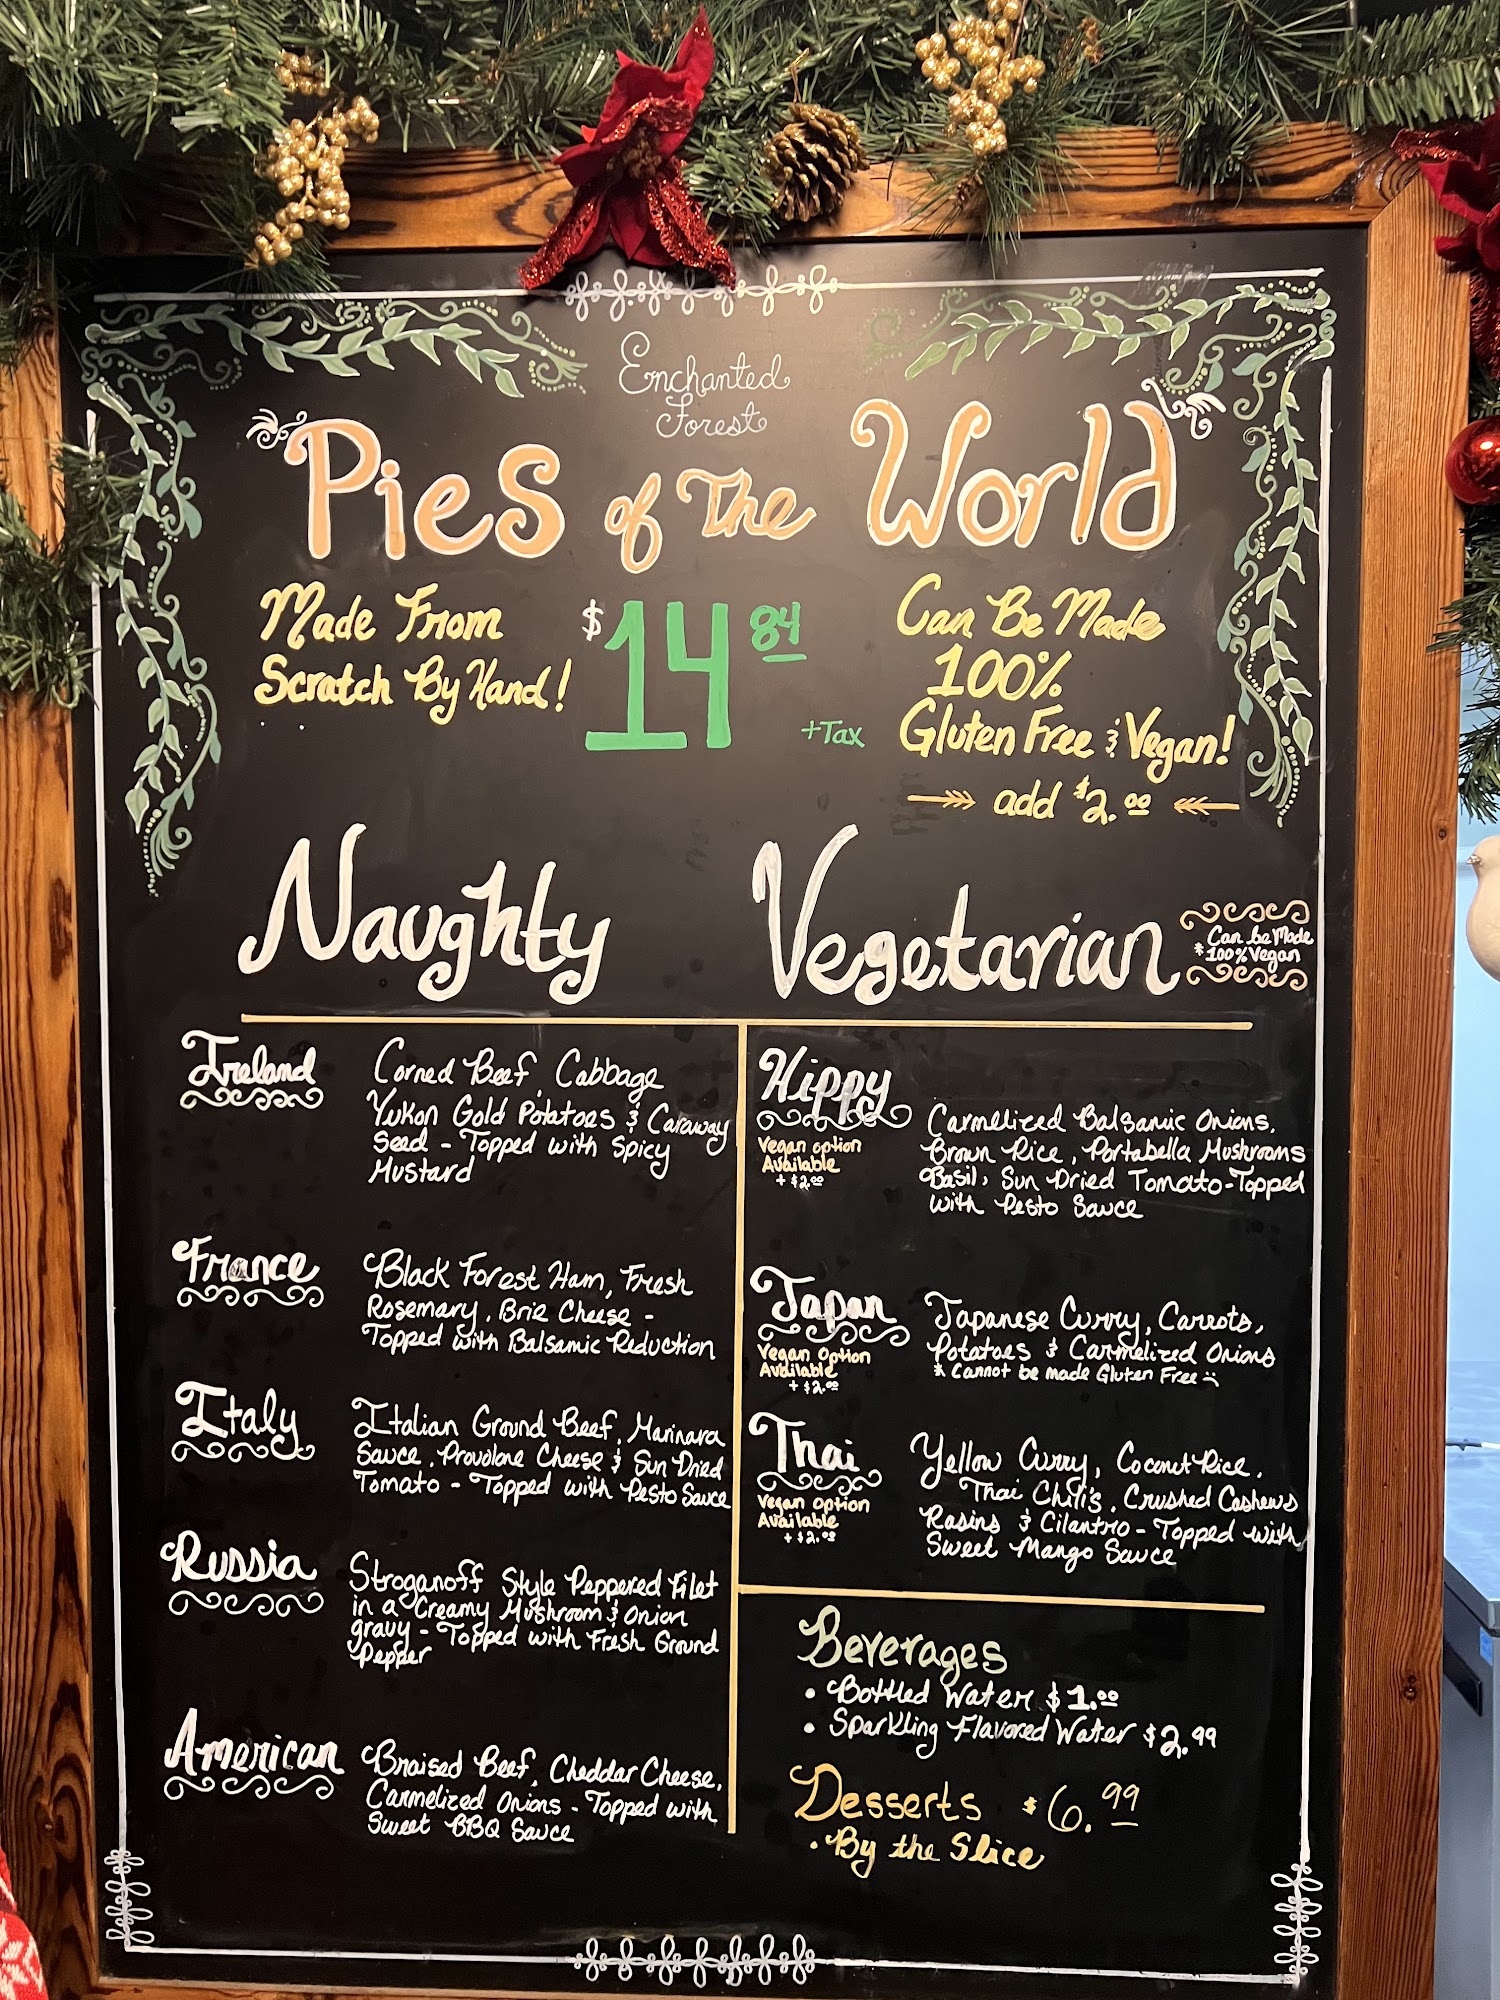 Enchanted
Forest
Pies of The World
Made From
Scratch By Hand!
$14 84
+Tax
Can Be Made
100%
Gluten Free & Vegan!
add $2.00
Naughty
Vegetarian
Can be Made
*100% Vegan
Ireland
Corned Beef, Cabbage
Yukon Gold Potatoes & Caraway
Seed - Topped with Spicy
Mustard
France
Black Forest Ham, Fresh
Rosemary, Brie Cheese -
Topped with Balsamic Reduction
Italy
Italian Ground Beef, Marinara
Sauce, Provolone Cheese & Sun Dried
Tomato - Topped with Pesto Sauce
Russia
Stroganoff Style Peppered Filet
in a Creamy Mushroom & Onion
gravy - Topped with Fresh Ground
Pepper
American
Braised Beef, Cheddar Cheese,
Carmelized Onions - Topped with
Sweet BBQ Sauce
Hippy
Vegan option
Available
+ $2.00
Carmelized Balsamic Onions,
Brown Rice, Portabella Mushrooms
Basil, Sun Dried Tomato-Topped
with Pesto Sauce
Japan
Vegan Option
Available
+ $2.00
Japanese Curry, Carrots,
Potatoes & Carmelized Onions
* Cannot be made Gluten Free :(
Thai
Vegan option
Available
+ $2.00
Yellow Curry, Coconut Rice,
Thai Chili's, Crushed Cashews
Rasins & Cilantro - Topped with
Sweet Mango Sauce
Beverages
• Bottled Water $1.00
• Sparkling Flavored Water $2.99
Desserts $6.99
• By the Slice